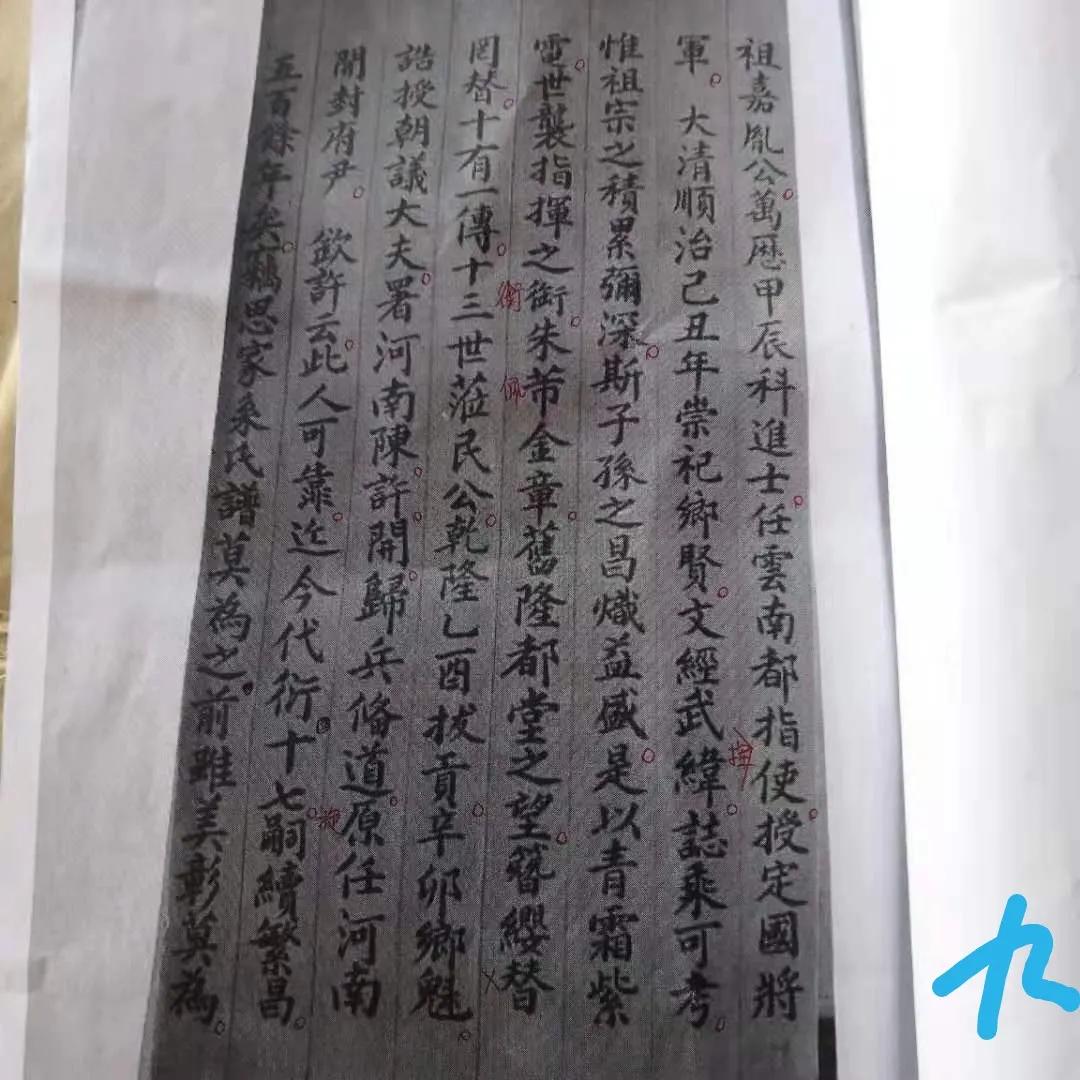 祖嘉胤公。萬歷甲辰科進士。任雲南都指使。授定國將
揮
軍。 大清順治己丑年崇祀鄉賢。文經武緯。誌乘可考。
惟祖宗之積累彌深。斯子孫之昌熾益盛。是以青霜紫
電。世襲指揮之銜。朱芾金章。舊隆都堂之望。簪纓替
衡
佩
罔替。十有一傳。十三世蒞民公。乾隆乙酉拔貢。辛卯鄉魁。
誥授朝議大夫。署河南陳。許。開。歸兵偹道。原任河南
開封府尹。 欽許云。此人可靠。迄今代衍。十七。嗣續繁昌。
五百餘年矣。竊思家乘氏譜莫為之。前雖美彰莫為。
九